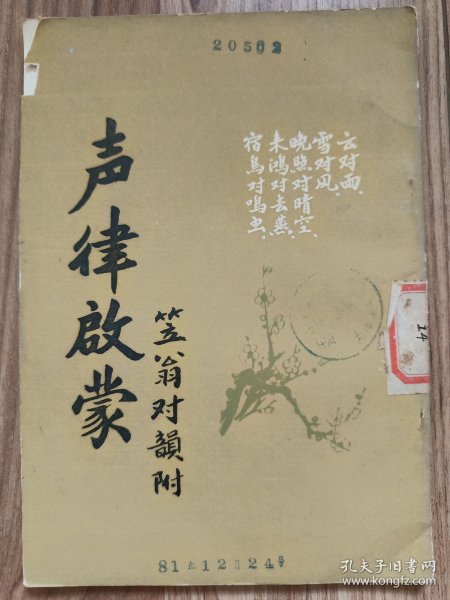 20562
云对雨、
雪对风、
晚照对晴空、
来鸿对去燕、
宿鸟对鸣虫、
声律啟蒙
笠翁对韻附
14
孔夫子旧书网
www.kongfz.com